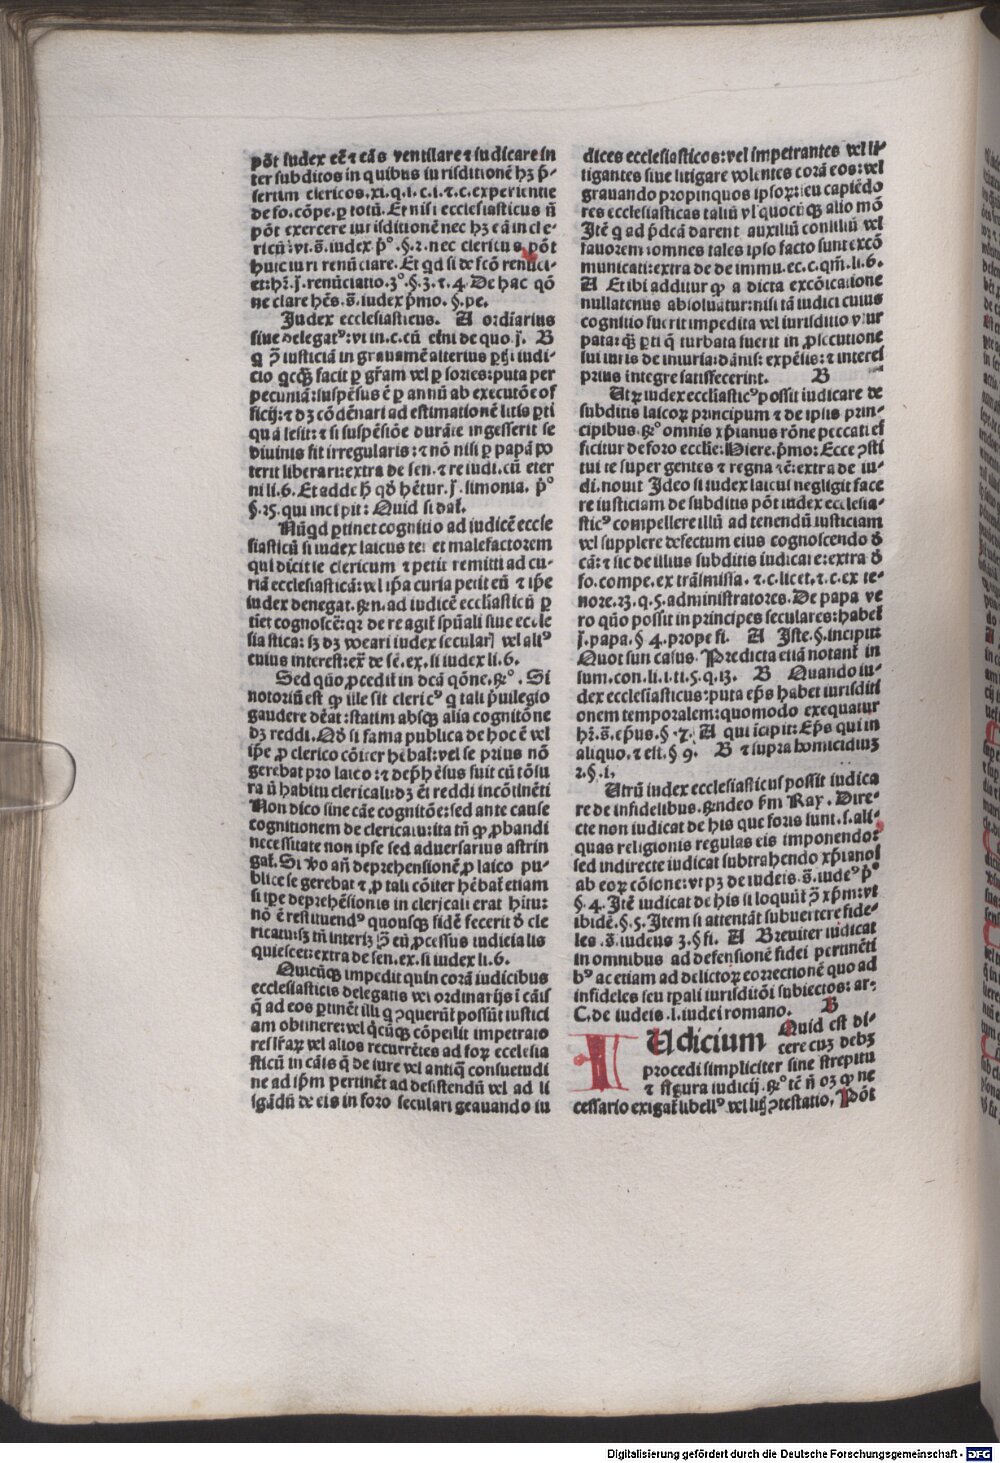 põt iudex eē ⁊ eãs ventilare ⁊ iudicare in
ter subditos in quibus iurisdictionē hʒ p̄-
sertim clericos.xi.q.i.c.i.⁊.c.experientie
de fo.cõpe.p totū. Et nisi ecclesiasticus ñ
põt exercere iurisditionē nec hʒ eã in cle-
ricū:vt.s̄.iudex p̊.§.2.nec clericus põt
huic iuri renūciare. Et qd si de fcõ renūci-
et:hʒ.j̄.renūciatio.3°.§.3.⁊.4. De hac qõ
ne clare hēs.s̄.iudex p̄mo.§.pe.
Judex ecclesiasticus. A ordinarius
siue delegatꝰ:vt in.c.cū eterni de quo.j̄. B
q ꝯ̄ iusticiã in grauamē alterius ptꝭ iudi-
cio qcqꝫ facit p gr̄am vel p sordes:puta per
pecuniã:suspēsus ē p annū ab executõe of
ficij:⁊ dʒ cõdēnari ad estimationē litis pti
quã lesit:⁊ si suspēsiõe durãte ingesserit se
diuinis fit irregularis:⁊ nõ nisi p papã po
terit liberari:extra de sen.⁊ re iudi.cū eter
ni li.6. Et adde h̄ qd̄ hētur.j̄.simonia.p̊
§.25.qui incipit: Quid si dat̄.
Nūqd ptinet cognitio ad iudicē eccle
siasticū si iudex laicus tenet malefactorem
qui dicit se clericum ⁊ petit remitti ad cu-
riã ecclesiasticã:vel ip̄a curia petit eū ⁊ ip̄e
iudex denegat. Rn. ad iudicē eccl̄iasticū p
tinet cognoscē:qꝛ de re agit̄ sp̄uali siue eccle
siastica:sʒ dʒ vocari iudex secular̄ vel aliꝰ
cuius interest:ex̄ de sē.ex.si iudex li.6.
Sed quo pcedit in dca qõne. R°. Si
notoriū est ꝙ ille sit clericꝰ q tali p̄uilegio
gaudere debeat:statim absqꝫ alia cognitõne
dʒ reddi. Qd̄ si fama publica de hoc ē vel
ip̄e p clerico cõiter hēbat̄:vel se prius nõ
gerebat pro laico:⁊ dep̄hēsus fuit cū tõsu
ra ⁊ habitu clericali:dʒ ēt reddi incõtinēti
Non dico sine cãe cognitõe:sed ante cause
cognitionem de clericatu:ita tñ ꝙ pbandi
necessitate non ipse sed aduersarius astrin
gat̄. Si vo añ deprehensionē p laico pu-
blice se gerebat ⁊ p tali cõiter hēbat̄ etiam
si tp̄e dep̄hēsionis in clericali erat hitu:
nõ ē restituendꝰ quousqꝫ fidē fecerit d̄ cle
ricatu:sʒ tñ interiʒ ꝯ̄ eū pcessus iudicialis
quiescet:extra de sen.ex.si iudex li.6.
Quicūqꝫ impedit quin corã iudicibus
ecclesiasticis delegatis vel ordinarijs ī cãis
q̄ ad eos ptinēt illi q ꝯquerūt̄ possūt iustici
am obtinere:vel qcūqꝫ cõpellit impetrato
res lr̄arꝫ vel alios recurrētes ad forꝫ ecclesia
sticū in cãis q̄ de iure vel antiq̄ consuetudi
ne ad ip̄m pertinēt ad desistendū vel ad li
tigãdū de eis in foro seculari grauando iu
dices ecclesiasticos:vel impetrantes vel li-
tigantes siue litigare volentes corã eos:vel
grauando propinquos ipsorꝫ:seu capiēdo
res ecclesiasticas taliū vl̄ quocūqꝫ alio mõ
Jtē q ad p̄dcã darent auxiliū consiliū vel
fauorem:omnes tales ipso facto sunt excõ
municati:extra de de immu.ec.c.qm̄.li.6.
A Et ibi additur ꝙ a dicta excõicatione
nullatenus absoluatur:nisi tã iudici cuius
cognitio fuerit impedita vel iurisditio vsur
pata:qꝫ pti q̄ turbata fuerit in psecutione
sui iuris de iniuria:dãnis:expēsis:⁊ interes
prius integre satisfecerint. B
Utꝫ iudex eccliasticꝰ possit iudicare de
subditis laicorꝫ principum ⁊ de ipsis prin-
cipibus. R° omnis xp̄ianus rõne peccati ef
ficitur de foro ecclie: Hiere.p̄mo: Ecce ꝯsti
tui te super gentes ⁊ regna ⁊c̄:extra de iu-
di.nouit Jdeo si iudex laicus negligit face
re iusticiam de subditis põt iudex ecclesia-
sticꝰ compellere illū ad tenendū iusticiam
vel supplere defectum eius cognoscendo d̄
cã:⁊ sic de illius subditis iudicare:extra d̄
fo.compe.ex trãsmissa.⁊.c.licet.⁊.c.ex te-
nore.23.q.5.administratores. De papa ve
ro quo possit in principes seculares:habes
j̄.papa.§ 4.prope fi. A Jste.§.incipit:
Quot sun casus. Predicta etiã notant̄ in
sum.con.li.i.ti.5.q.13. B Quando iu-
dex ecclesiasticus:puta ep̄s habet iurisditi
onem temporalem:quomodo exequatur
hʒ.s̄.ep̄us.§.7. A qui ĩcipit: Ep̄s qui in
aliquo.⁊ eti.§ 9. B ⁊ supra homicidiuʒ
2.§.i.
Utrū iudex ecclesiasticus possit iudica
re de infidelibus. Rndeo s̄m Ray. Dire-
cte non iudicat de his que foris sunt.s.ali-
quas religionis regulas eis imponendo:
sed indirecte iudicat subtrahendo xp̄ianos
ab eorꝫ cõione:vt pʒ de iudeis.s̄.iudeꝰ p̊
§.4. Jtē iudicat de his si loquūt̄ ꝯ̄ xp̄m:vt
ibidē.§.5. Jtem si attentãt subuertere fide-
les.s̄.iudeus 3.§ fi. A Breuiter iudicat
in omnibus ad defensionē fidei pertinēti
bꝰ ac etiam ad delictorꝫ correctionē quo ad
infideles seu tp̄ali iurisditiõi subiectos:ar-
C.de iudeis.l.iudei romano. B
IUdicium Quid est di-
cere cuʒ debʒ
procedi simpliciter sine strepitu
⁊ figura iudicij. R° tē ñ oʒ ꝙ ne
cessario exigat̄ libellꝰ vel litꝭ ꝯtestatio. Põt
Digitalisierung gefördert durch die Deutsche Forschungsgemeinschaft - DFG